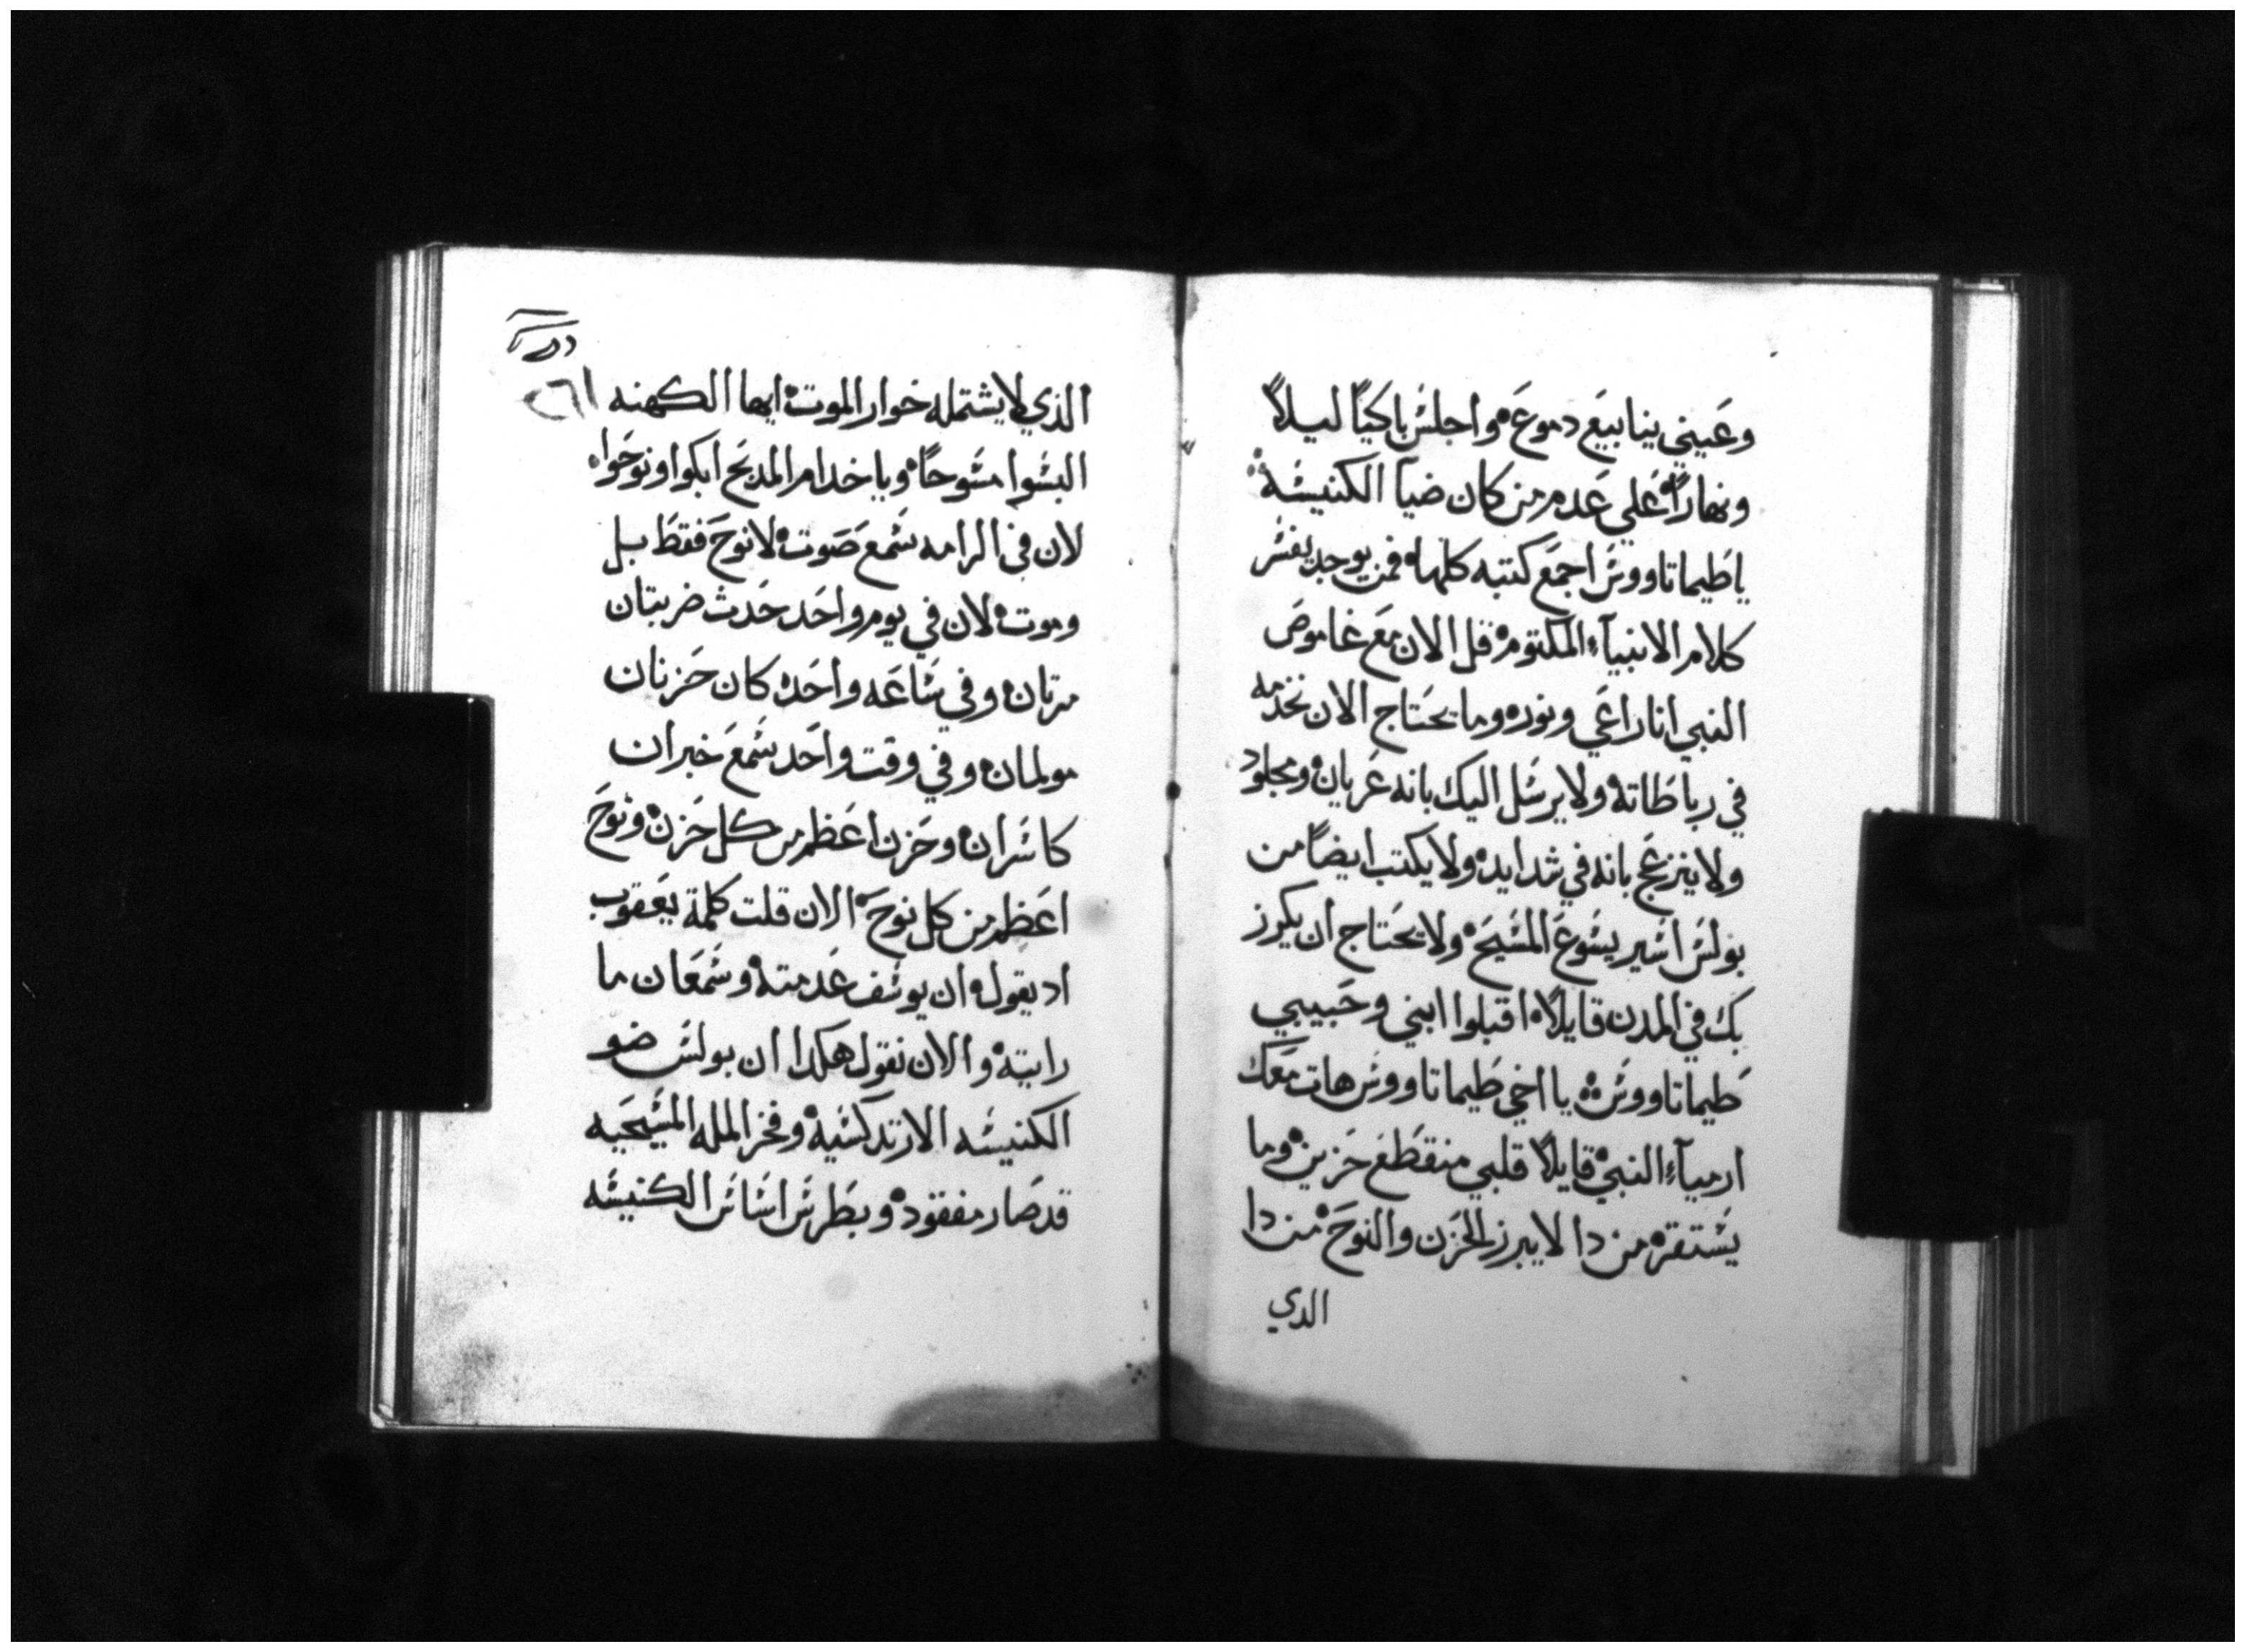 وعيني ينابيع دموع واجلس باكيًا ليلاً
ونهارًا علي عدم من كان ضيآ الكنيسه
ياطيماتاووس اجمع كتبه كلها فمن يوجد يفسر
كلام الانبيآء المكتوم قل الان مع غاموص
النبي انا راعي ونوره وما يحتاج الان نخدمه
في رباطاته ولا يرسل اليك بانه عريان ومجلود
ولا ينزعج بانه في شدايد ولا يكتب ايضًا من
بولس اسير يسوع المسيح ولا يحتاج ان يكرز
بك في المدن قايلاً اقبلوا ابني وحبيبي
طيماتاووس يا اخي طيماتاووس هات معك
ارميآء النبي قايلاً قلبي منقطع حزين وما
يستقره من دا لا يبرز الحزن والنوح من دا
الدي
٢٦١
الذي لا يشتمله خوار الموت ايها الكهنه
البسوا مسوحًا ويا خدام المدبح ابكوا ونوحوا
لان في الرامه سمع صوت لا نوح فقط بل
وموت لان في يوم واحد حدث ضربتان
مرتان وفي ساعه واحده كان حزنان
مولمان وفي وقت واحد سمع خبران
كاسران وحزن اعظم من كل حزن ونوح
اعظم من كل نوح الان قلت كلمة يعقوب
اد يقول ان يوسف عدمته وسمعان ما
رايته والان نقول هكدا ان بولس ضو
الكنيسه الارتدكسيه وفخر المله المسيحيه
قد صار مفقود وبطرس اساس الكنيسه